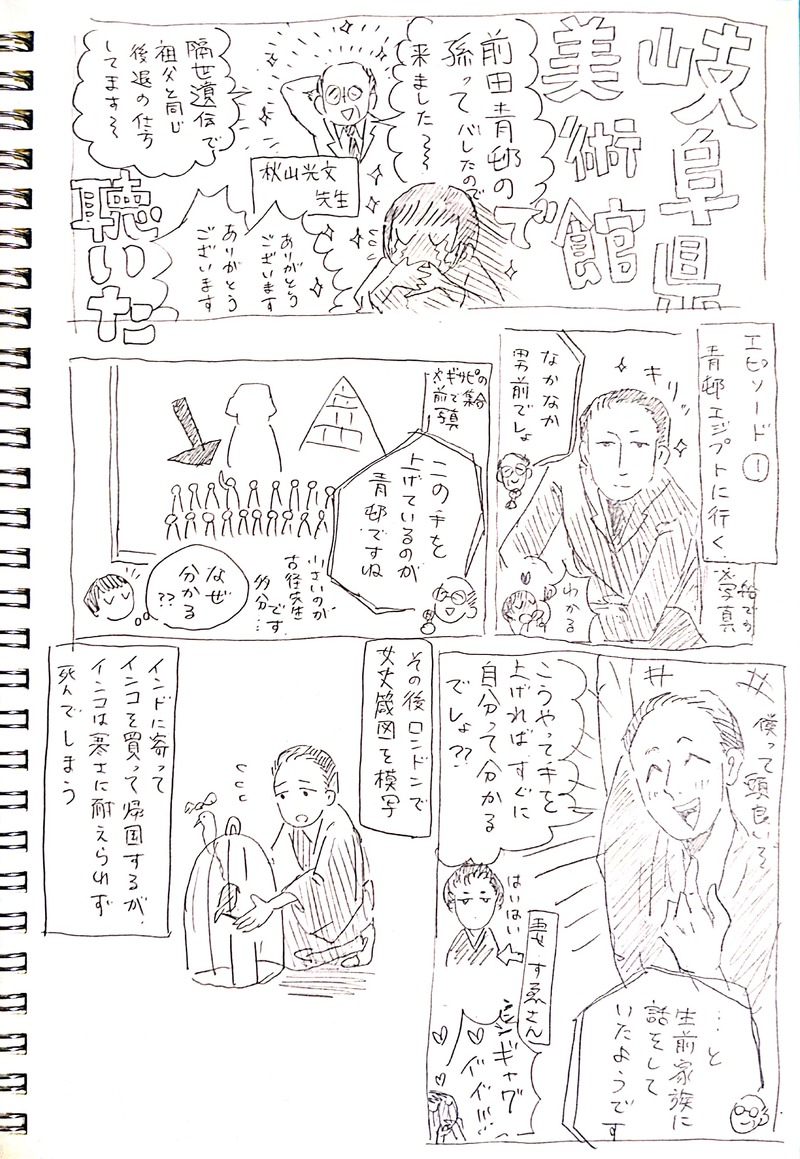 岐阜県
美術館
で
聴いた
前田青邨の
孫ってバレたので
来ました〜〜
隔世遺伝で
祖父と同じ
後退の仕方
してます〜
秋山光文
先生
ありがとう
ございます
ありがとう
ございます
エピソード①
青邨エジプトに行く
※船での
写真
キリッ
なかなか
男前でしょ
わかる
※ギザピの
前で集合
写真
この手を
上げているのが
青邨ですね
小さいのが
古径先生
です
多分…
なぜ
分かる
??
僕って頭良い〜
こうやって手を
上げればすぐに
自分って分かる
でしょ??
はいはい
妻・すゑさん
…と
生前家族に
話をして
いたようです
ギャグ
イイ!!!
その後ロンドンで
女史箴図を模写
インドに寄って
インコを買って帰国するが、
インコは寒さに耐えられず
死んでしまう